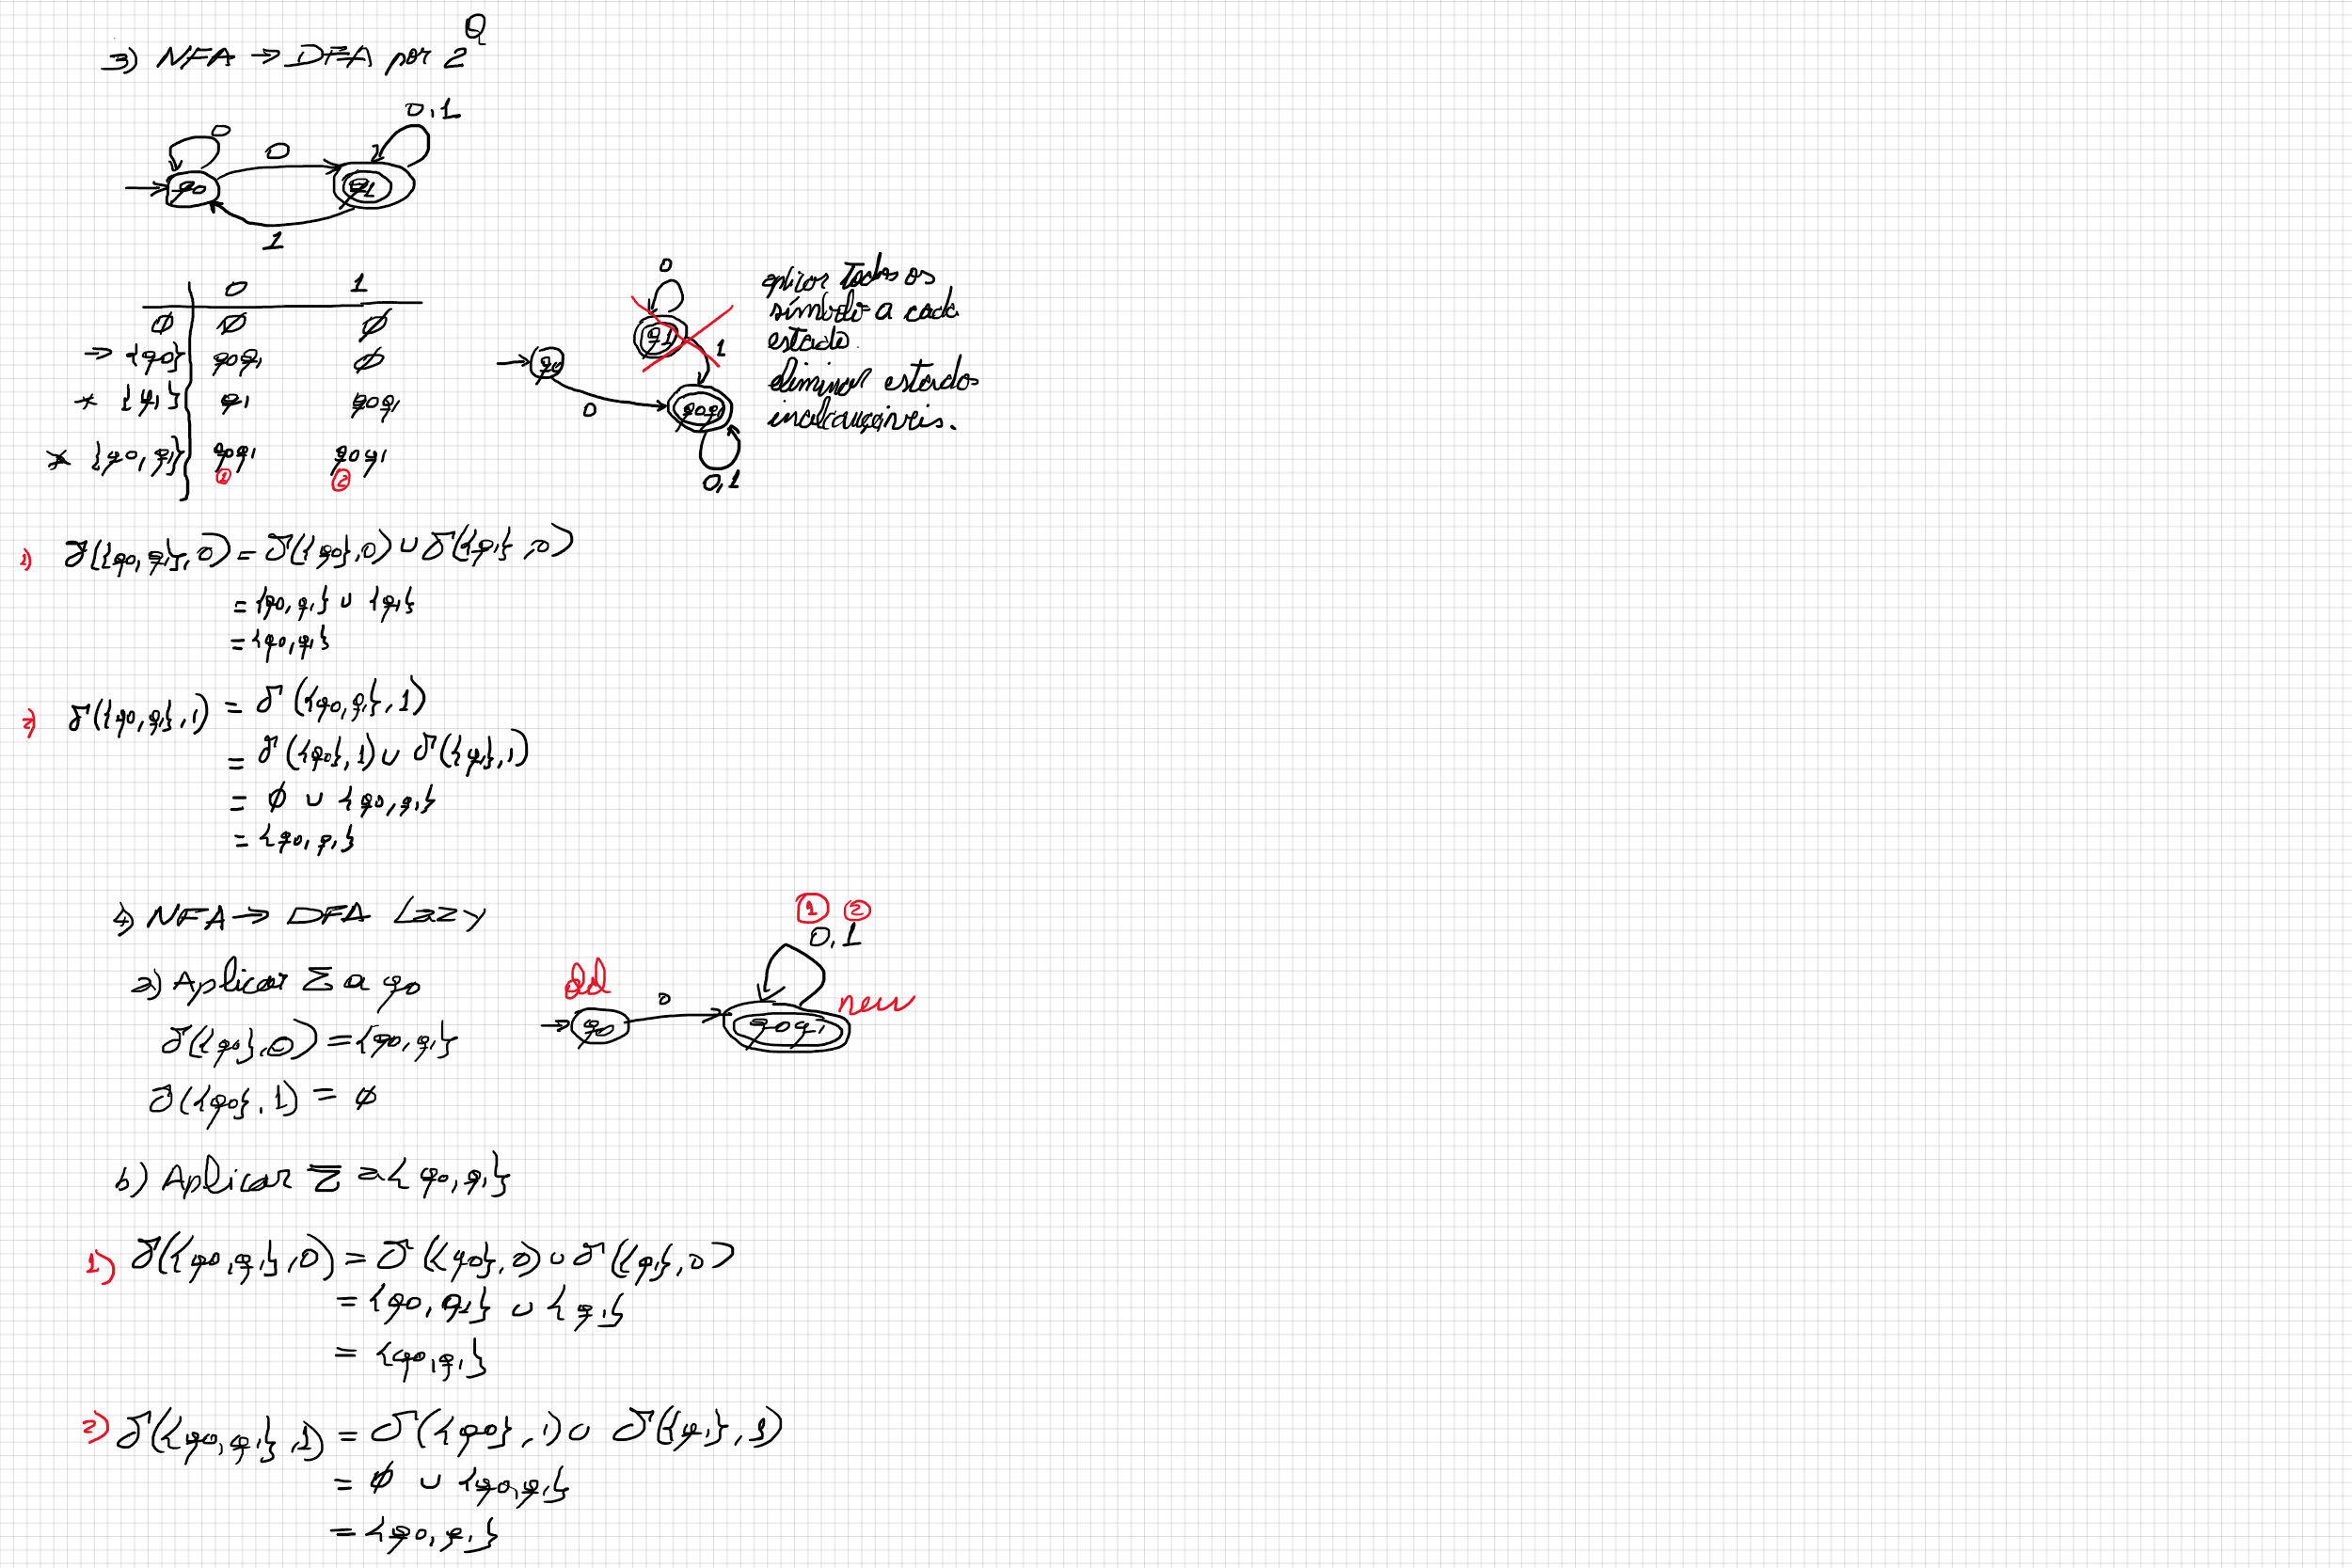 3) NFA → DFA por 2^Q
0,1
0
0
q0
q1
1
0 1
∅ ∅ ∅
→ {q0} q0q1 ∅
* {q1} q1 q0q1
* {q0,q1} q0q1 q0q1
① ②
0
q1
1
q0
0
q0q1
0,1
aplicar todos os
símbolo a cada
estado.
eliminar estados
1) δ({q0,q1},0) = δ({q0},0) ∪ δ({q1},0)
= {q0,q1} ∪ {q1}
= {q0,q1}
2) δ({q0,q1},1) = δ({q0,q1},1)
= δ({q0},1) ∪ δ({q1},1)
= ∅ ∪ {q0,q1}
= {q0,q1}
4) NFA → DFA Lazy
① ②
0,1
old
0
new
q0
q0q1
a) Aplicar Σ a q0
δ({q0},0) = {q0,q1}
δ({q0},1) = ∅
b) Aplicar Σ a {q0,q1}
1) δ({q0,q1},0) = δ({q0},0) ∪ δ({q1},0)
= {q0,q1} ∪ {q1}
= {q0,q1}
2) δ({q0,q1},1) = δ({q0},1) ∪ δ({q1},1)
= ∅ ∪ {q0,q1}
= {q0,q1}